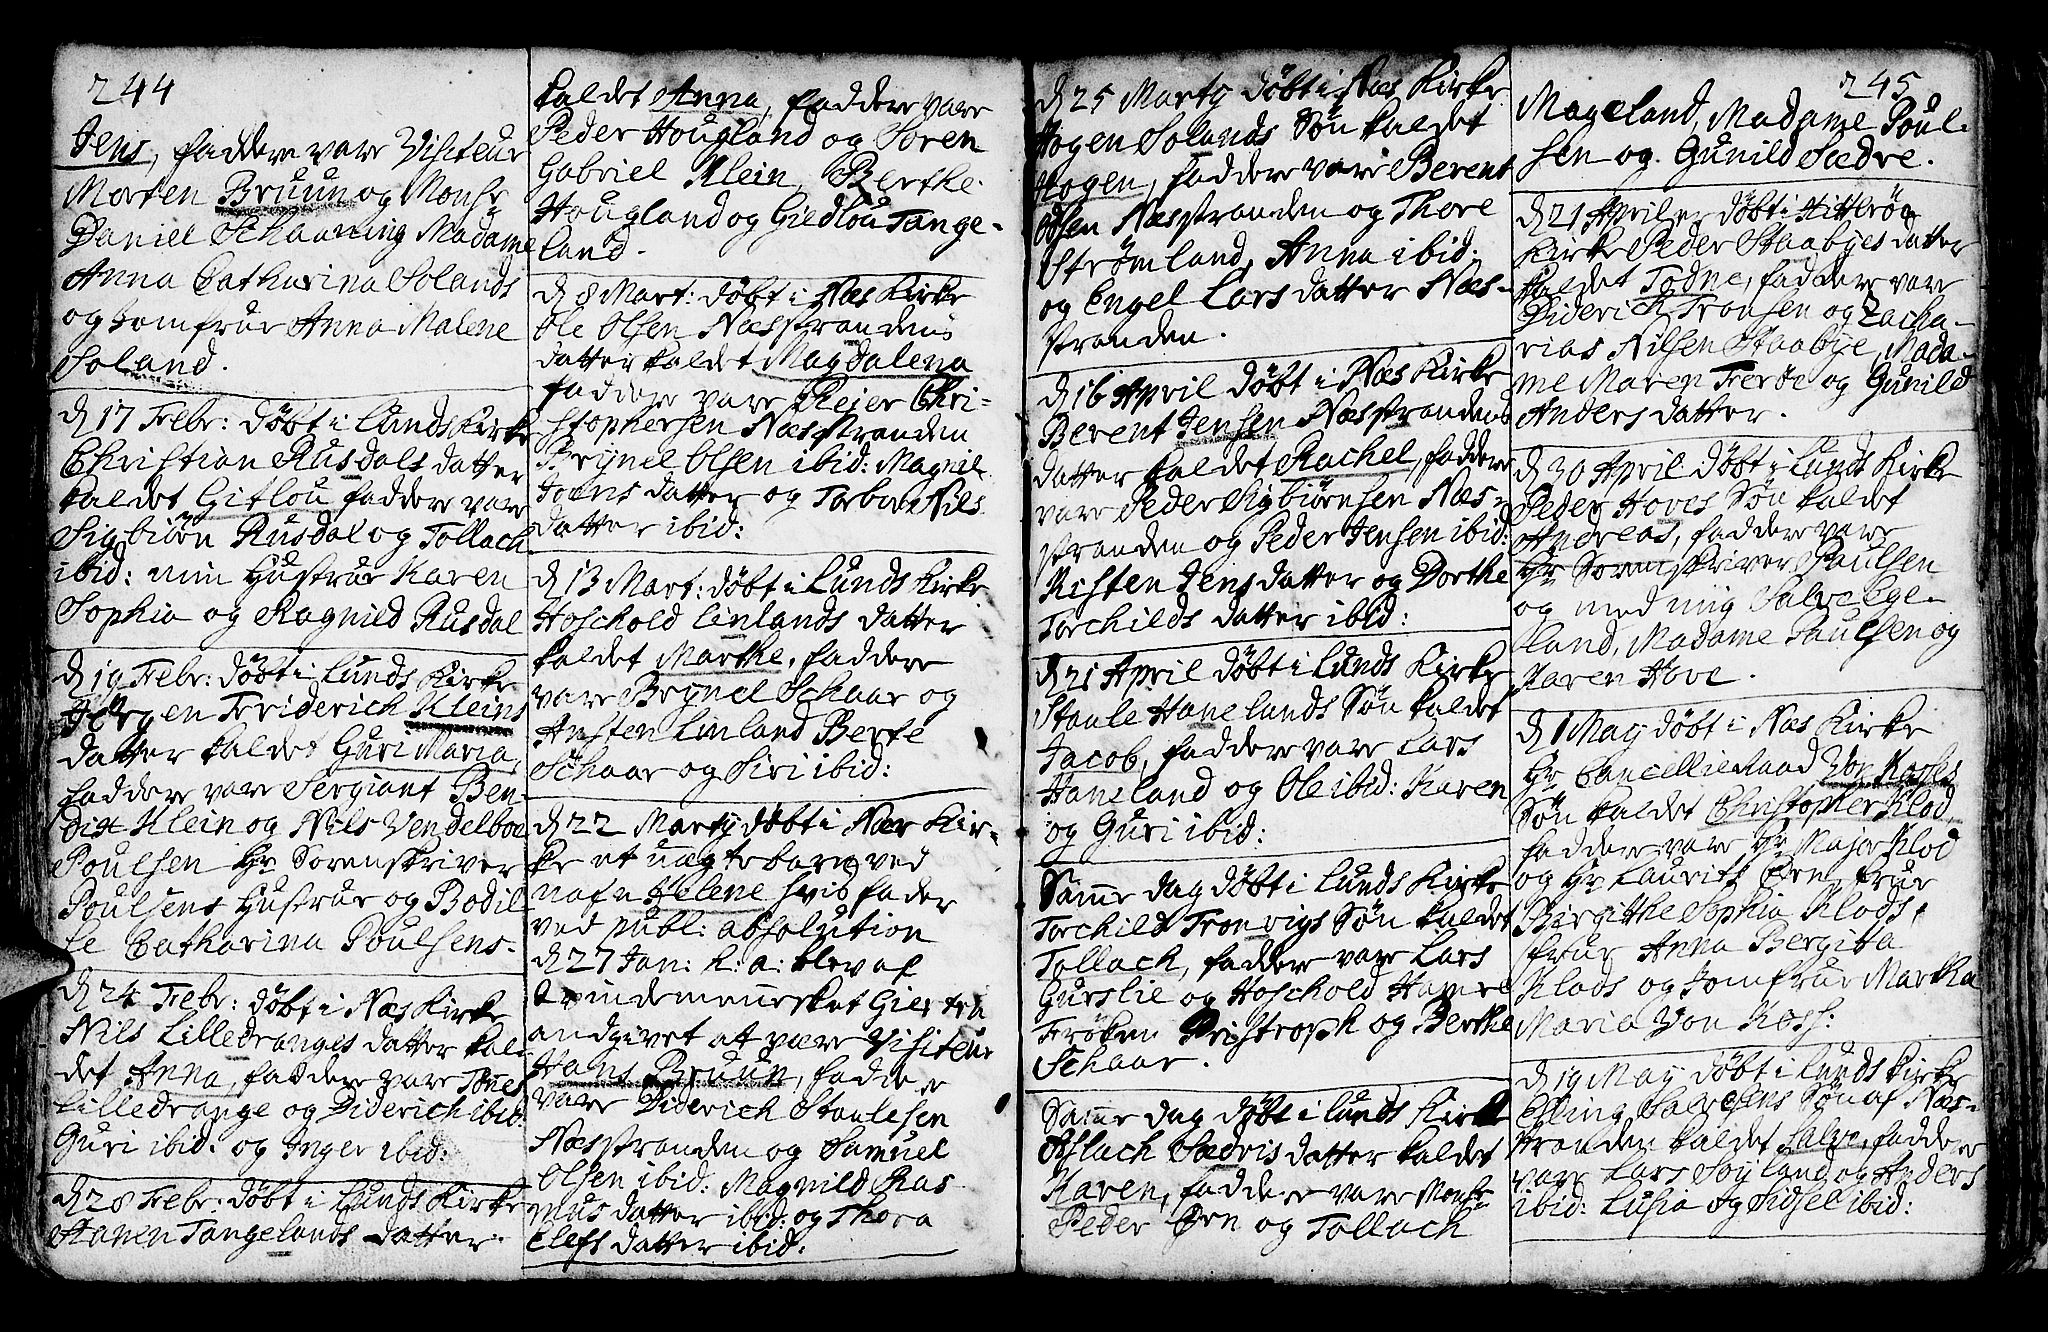 244
Jens, faddere vare Visiteur
Morten Bruun og Monsr
Daniel Schaaning Madame
Anna Catharina Solands
og Jomfrue Anna Malene
Soland.
d 17 Febr: döbt i Lunds Kirke
Christian Rusdals datter
kaldet Gitlou faddere vare
Sigbiörn Rusdal og Tollach
ibid: min Hustrue Karen
Sophia og Ragnild Rusdal
d 19 Febr: döbt i Lunds Kirke
Jörgen Friderich Kleins
datter kaldet Guri Maria,
faddere vare Sergiant Ben-
dix Klein og Nils Vendelboe
Poulsen Hr Sorenskriver
Poulsens Hustrue og Bodil-
le Catharina Poulsens.
d 24 Febr: döbt i Næs Kirke
Nils Lilledranges datter kal-
det Anna, faddere vare Tönes
Lilledrange og Diderich ibid:
Guri ibid: og Inger ibid:
d 28 Febr: döbt i Lunds Kirke
Hanen Tangelands datter
kaldet Anna, faddere vare
Peder Hougland og Soren
Gabriel Klein, Berthe
Hougland og Giedlou Tange-
land.
d 8 Mart: döbt i Næs Kirke
Ole Olsen Næsstrandens
datter kaldet Magdalena
faddere vare Reier Chri-
stophersen Næsstranden
Brynel Olsen ibid: Magnil
Joensdatter og Torbor Nils
datter ibid:
d 13 Mart: döbt i Lunds Kirke
Hoschold Linlands datter
kaldet Marthe, faddere
vare Brynel Schaar og
Austen Linland Berte
Schaar og Siri ibid:
d 22 Martij döbt i Næs Kir-
ke et uægte barn ved
nafn Helene hvis fader
ved publ: absolution
d 27 Jan: h: a: blev af
Qvindemennesket Giertru
andgivet at være Visiteur
Hans Bruun, faddere
vare Diderich Staulesen
Næsstranden og Samuel
Olsen ibid: Magnild Ras
mus datter ibid: og Thora
Elefs datter ibid:
d 25 Martij döbt i Næs Kirke
Hogen Solands Sön kaldet
Hogen, faddere vare Berent
Olsen Næsstranden og Thore
Strömland, Anna ibid:
og Engel Larsdatter Næs-
stranden.
d 16 April döbt i Næs Kirke
Berent Jensen Næsstrandens
datter kaldet Rachel, faddere
vare Peder Sigbiörnsen Næs-
stranden og Peder Jensen ibid:
Kisten Jensdatter og Dorthe
Torchilds datter ibid:
d 21 April döbt i Lunds Kirke
Staule Hanelands Sön kaldet
Jacob, faddere vare Lars
Haneland og Ole ibid: Karen
og Guri ibid:
Samme dag döbt i Lunds Kirke
Torchild Tronvigs Sön kaldet
Tollach, faddere vare Lars
Gurslie og Hoschold Hamre
Fröken Pristroph og Berthe
Schaar.
Samme dag döbt i Lunds Kirke
Aslach Sædvis datter kaldet
Karen, faddere vare Monsr
Peder Örn og Tollach
245
Mageland, Madame Poul-
sen og Gunild Sædre.
d 21 Apriler döbt i Hitteröe
Kirke Peder Staabyes datter
kaldet Todne, faddere vare
Diderich Tronsen og Zacha-
rias Nilsen Staabye, Mada-
me Maren Feröe og Gunild
Anders datter.
d 30 April döbt i Lunds Kirke
Peder Hoves Sön kaldet
Andreas, faddere vare
Hr Sorenskriver Paulsen
og med mig Salve Ege-
land, Madame Paulsen og
Karen Hove.
d 1 May döbt i Næs Kirke
Hr Cancellieraad Von Kosses
Sön kaldet Christopher Klod,
faddere vare Hr Major Klod
og Hr Laurits Örn, frue
Birgithe Sophia Klods,
frue Anna Bergitta
Klods og Jomfrue Martha
Maria Von Koss:
d 19 May döbt i Lunds Kirke
Elling Salvesens Sön af Næs-
stranden kaldet Salve, faddere
vare Lars Soyland og Anders
ibid: Lusia og Sidsel ibid: